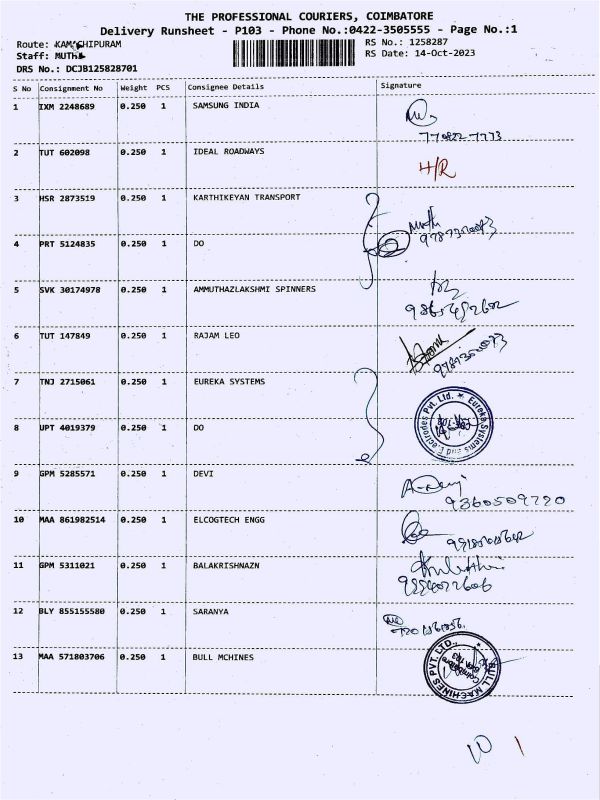 THE PROFESSIONAL COURIERS, COIMBATORE
Delivery Runsheet - P103 - Phone No.:0422-3505555 - Page No.:1
Route: KAMACHIPURAM RS No.: 1258287
Staff: MUTHU RS Date: 14-Oct-2023
DRS No.: DCJB125828701
S No Consignment No Weight PCS Consignee Details Signature
1 IXM 2248689 0.250 1 SAMSUNG INDIA
2 TUT 602098 0.250 1 IDEAL ROADWAYS H/R
3 HSR 2873519 0.250 1 KARTHIKEYAN TRANSPORT
Muthu
4 PRT 5124835 0.250 1 DO
5 SVK 30174978 0.250 1 AMMUTHAZLAKSHMI SPINNERS
6 TUT 147849 0.250 1 RAJAM LEO
7 TNJ 2715061 0.250 1 EUREKA SYSTEMS
8 UPT 4019379 0.250 1 DO
Eureka Systems and Electrodes Pvt. Ltd.
9 GPM 5285571 0.250 1 DEVI
A-Devi
9360509720
10 MAA 861982514 0.250 1 ELCOGTECH ENGG
11 GPM 5311021 0.250 1 BALAKRISHNAZN
12 BLY 855155580 0.250 1 SARANYA
13 MAA 571803706 0.250 1 BULL MCHINES
BULL MACHINES PVT. LTD.,
Coimbatore